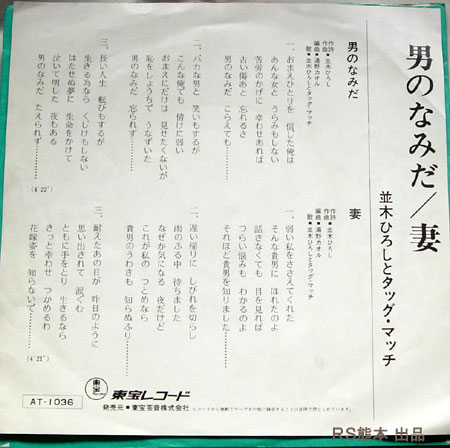 男のなみだ/妻
並木ひろしとタッグ・マッチ
男のなみだ
作詩・並木ひろし
作曲
編曲・湯野カオル
歌・並木ひろしとタッグ・マッチ
一、おまえひとりを 信じた俺は
あんな女と うらみもしない
苦労のかげに 幸わせあれば
古い傷あと 忘れるさ
男のなみだ こらえても……
二、バカな男と 笑いもするが
こんな俺でも 情けに弱い
おまえにだけは 見せたくないが
恥をしょうちで うなずいた
男のなみだ 忘られず……
三、長い人生 転びもするが
生きる為なら くじけもしない
はたせぬ夢に 生命をかけて
泣いて明した 夜もある
男のなみだ たえられず……
(4′22″)
妻
作詩・並木ひろし
作曲
編曲・湯野カオル
歌・並木ひろしとタッグ・マッチ
一、弱い私をささえてくれた
そんな貴男に ほれたのよ
話さなくても 目を見れば
つらい悩みも わかるのよ
それほど貴男を知りました……
二、遅い帰りに しびれを切らし
雨のふる中 待ちました
なぜか気になる 夜だけど
これが私の つとめなら
貴男のうわさも 知らぬふり……
三、耐えたあの日が 昨日のように
思い出されて 涙ぐむ
ともに手をとり 生きるなら
きっと幸わせ つかめるわ
花嫁姿を 知らないで……
(4′21″)
AT-1036
東宝
東宝レコード
発売元・東宝芸音株式会社
RS熊本 出品